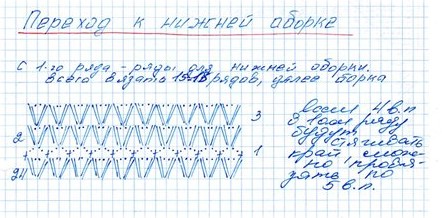 Переход к нижней оборке
с 1-го ряда - ряды для нижней оборки.
всего вязать 15-18 рядов, далее борка
3
2
1
24
если 4 в.п
в 1-ом ряду
будут
стягивать
край, можно
но провя-
зать по
5 в.п.